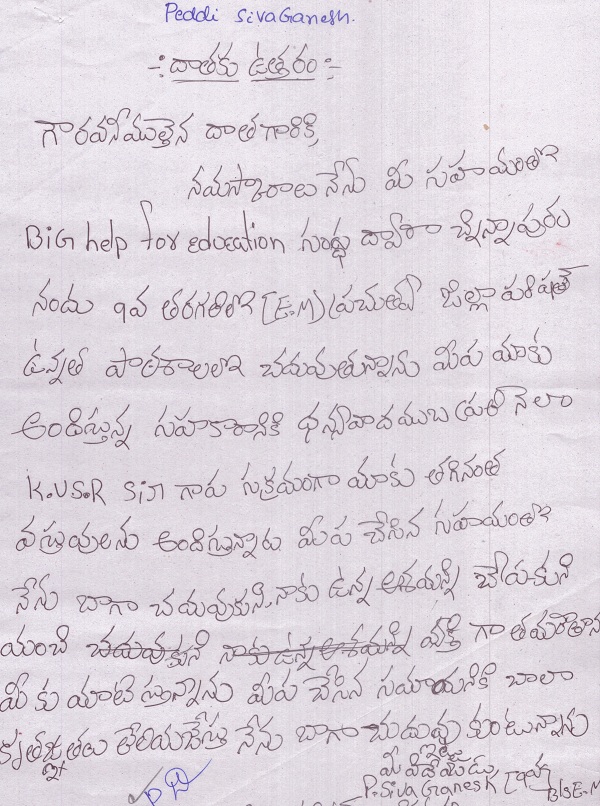 Peddi SivaGanesh.
-: దాతకు ఉత్తరం :-
గౌరవనీయులైన దాతగారికి,
నమస్కారాలు నేను మీ సహాయంతో
BiG help for education సంస్థ ద్వారా చిన్నాపురం
నందు 9వ తరగతిలో (E.M) ప్రభుత్వ జిల్లా పరిషత్
ఉన్నత పాఠశాలలో చదువుతున్నాను మీరు మాకు
అందిస్తున్న సహకారానికి ధన్యవాదములు ప్రతి నెలా
K.V.S.R sir గారు సక్రమంగా మాకు తగినంత
వస్తువులను అందిస్తున్నారు మీరు చేసిన సహాయంతో
నేను బాగా చదువుకుని నాకు ఉన్న ఆశయాన్ని చేరుకుని
మంచి వ్యక్తి గా తయారౌతాను
మీ కు మాటిస్తున్నాను మీరు చేసిన సహాయానికి చాలా
కృతజ్ఞతలు తెలియచేస్తూ నేను బాగా చదువు కుంటున్నాను
ఇట్లు
మీ విధేయుడు
P. Siva Ganesh